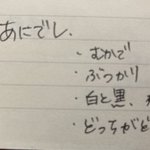 あにでし.
・むかで
・ぶつかり
・白と黒、
・どっちがど